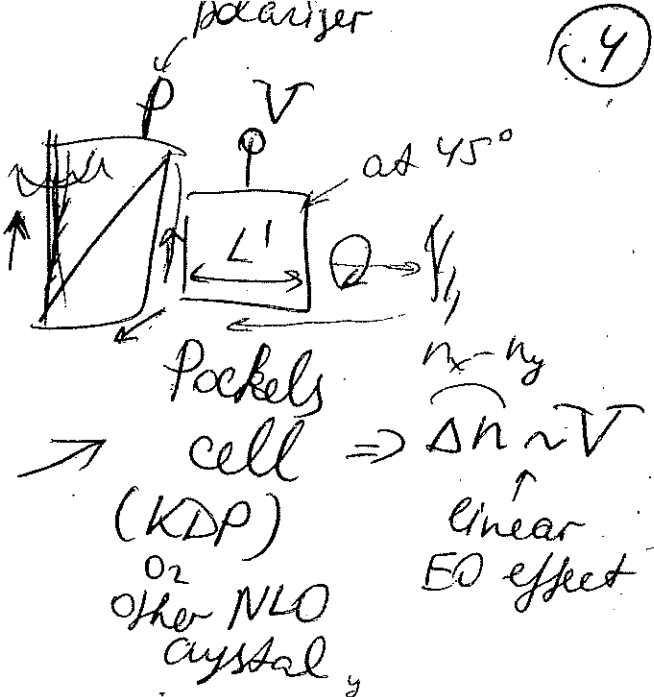 polarizer
4
P
V
at 45°
L'
Pockels
cell
(KDP)
or
other NLO
crystal
nx - ny
=> Δn ~ V
linear
EO effect